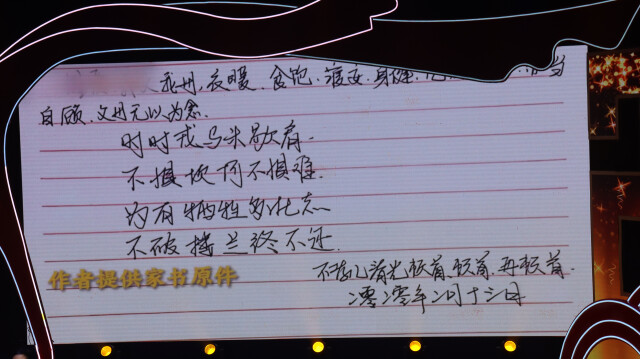 衣暖、食饱、宿安、身健、 当
自顾,父母无以为念.
时时戎马未歇肩.
不惧坎坷不惧难.
为有牺牲多壮志
不破楼兰终不还.
不孝儿清光顿首、顿首、再顿首.
二零二零年二月十三日
作者提供家书原件